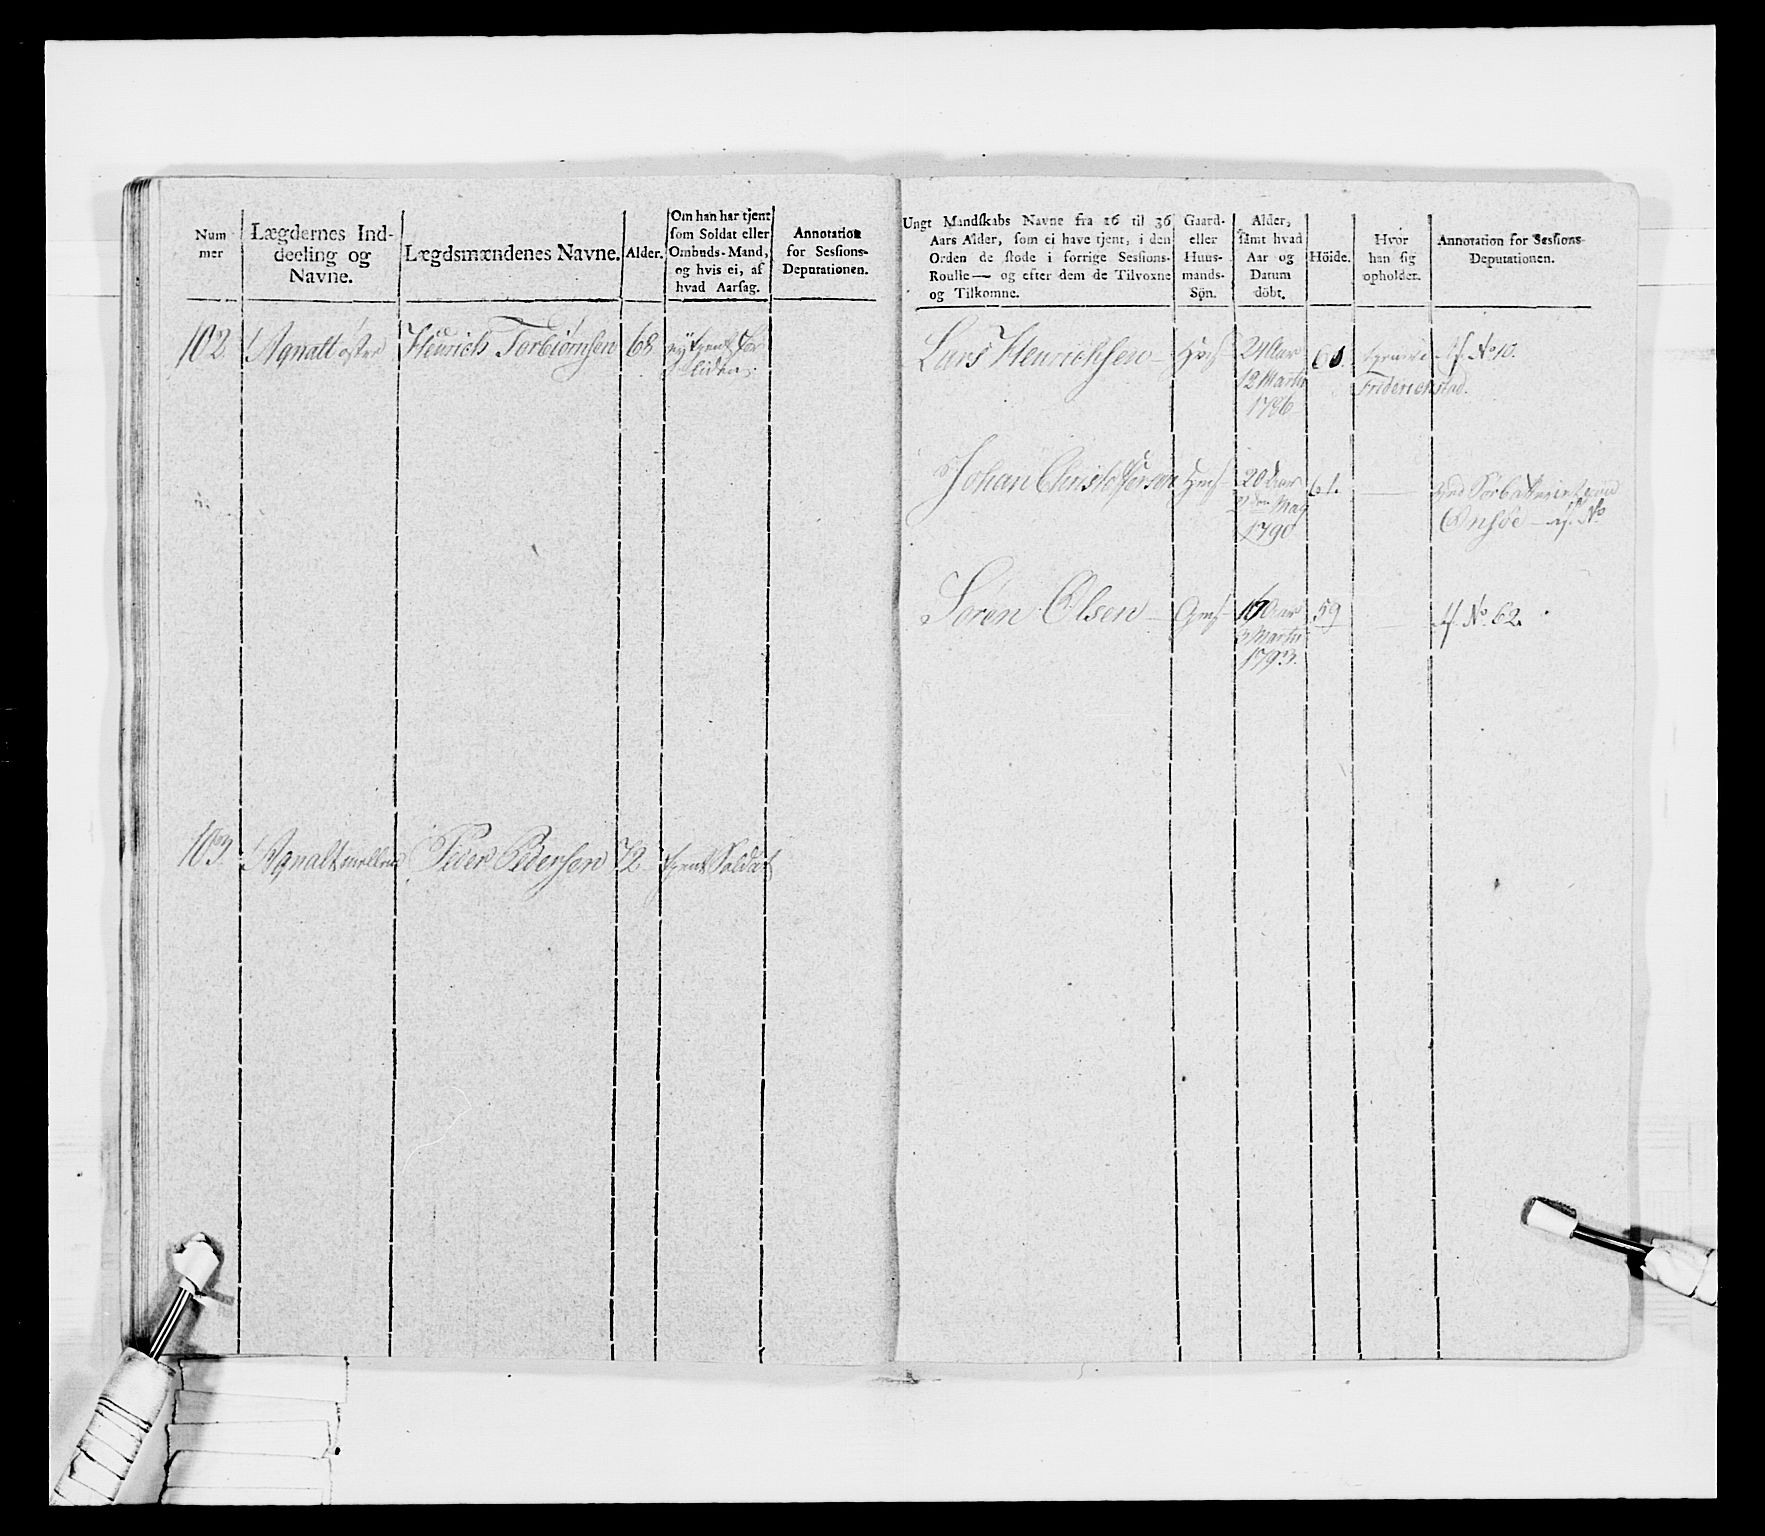 Num
mer
Lægdernes Ind-
deeling og
Navne.
Lægdsmændenes Navne.
Alder.
Om han har tjent
som Soldat eller
Ombuds-Mand,
og hvis ei, af
hvad Aarsag.
Annotation
for Sessions-
Deputationen.
102. Agnalt øster Henrich Torbiørnsen 68
103. Agnalt mellem Peder Pedersen 72 tjent Soldat
Ungt Mandskabs Navne fra 16 til 36
Aars Alder, som ei have tjent, i den
Orden de stode i forrige Sessions-
Roulle — og efter dem de Tilvoxne
og Tilkomne.
Gaard-
eller
Huus-
mands-
Søn.
Alder,
samt hvad
Aar og
Datum
döbt.
Höide.
Hvor
han sig
opholder.
Annotation for Sessions-
Deputationen.
Lars Henrichsen — 24 Aar No 10.
12 Martii Friderichstad.
1786
Johan Christophersen 20 Aar 61. —
May Onsøe No
1790
Søren Olsen — 16 Aar 59 — No. 62.
Martii
1793.